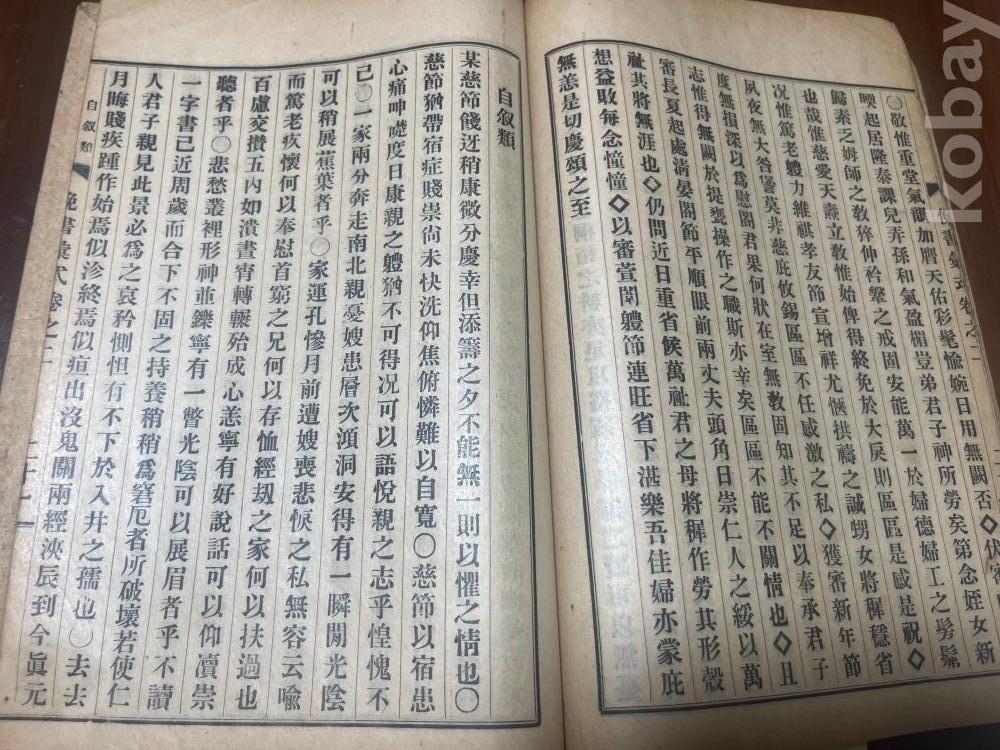 kobay
敬惟重堂氣體加膺天佑彩髦愉婉日用無闕否◇伏審
喫起居隆泰課兒弄孫和氣盈楣豈弟君子神所勞矣第念姪女新
歸秦之姆師之敎猝伸衿鞶之戒固安能萬一於婦德婦工之髣髴
也哉惟慈愛天燾立敎惟始俾得終免於大戾則區區是感是祝◇
況惟篤老體力維祺孝友節宣增祥尤愜拱禱之誠甥女將穉穩省
夙夜無大咎罾莫非慈庇攸錫區區不任感激之私◇獲審新年節
度無損深以爲慰閤君果何狀在室無敎固知其不足以奉承君子
志惟得無闕於提甕操作之職斯亦幸矣區區不能不關情也◇且
審長夏起處淸晏閤節平順眼前兩丈夫頭角日崇仁人之綏以萬
祉其將無涯也◇仍問近日重省候萬祉君之母將穉作勞其形殼
想益敗每念憧憧◇以審萱闈體節連旺省下湛樂吾佳婦亦蒙庇
無恙是切慶頌之至
自叙類
某慈節餞迓稍康微分慶幸但添籌之夕不能無一則以懼之情也〇
慈節猶帶宿症賤祟尙未快洗仰焦俯憐難以自寬〇慈節以宿患
心痛呻囈度日康親之體猶不可得况可以語悅親之志乎惶愧不
己〇一家兩分奔走南北親憂嫂患層次澒洞安得有一瞬閒光陰
可以稍展蕉葉者乎〇家運孔慘月前遭嫂喪悲悷之私無容云喩
而篤老疾懷何以奉慰首窮之兄何以存恤經刼之家何以扶過也
百慮交攢五內如潰晝宵轉輾殆成心恙寧有好說話可以仰瀆崇
聽者乎〇悲愁叢裡形神並鑠寧有一瞥光陰可以展眉者乎不讀
一字書已近周歲而合下不固之持養稍稍爲窘厄者所破壞若使仁
人君子親見此景必爲之哀矜惻怛有不下於入井之孺也〇去去
月晦賤疾踵作始焉似沴終焉似疸出沒鬼關兩經浹辰到今眞元
自叙類
俛書彙式卷之二